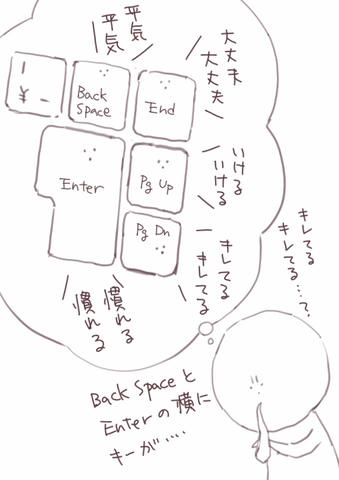 平気
平気
大丈夫
大丈夫
いける
いける
キレてる
キレてる
慣れる
慣れる
|
¥ _
Back
Space
End
Enter
Pg Up
Pg Dn
キレてる
キレてる…?
Back Spaceと
Enterの横に
キーが……